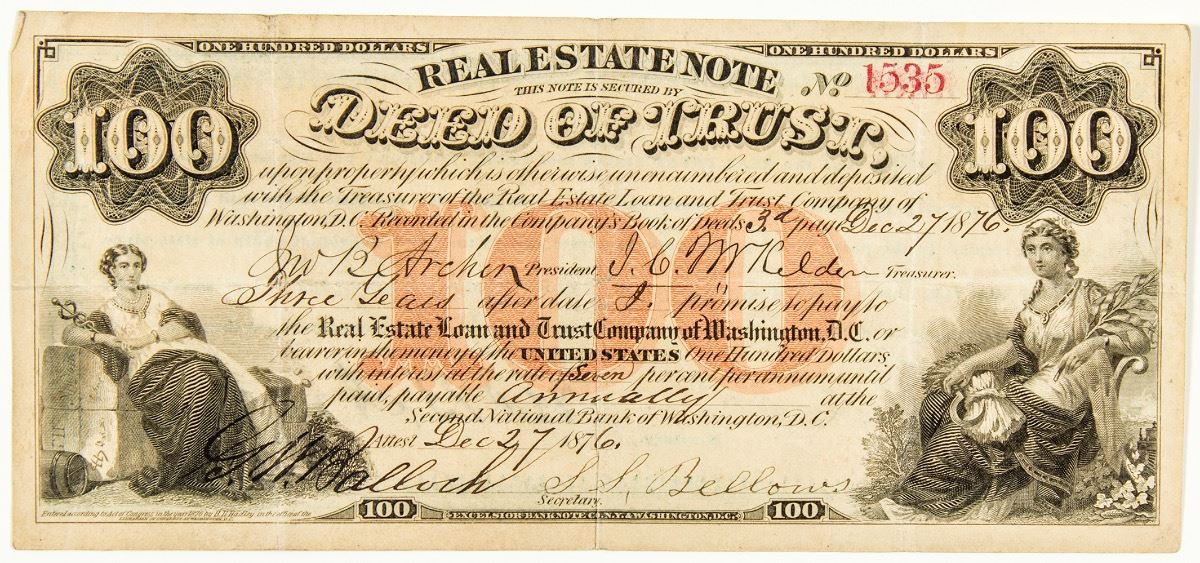 ONE HUNDRED DOLLARS
ONE HUNDRED DOLLARS
REAL ESTATE NOTE
No. 1535
THIS NOTE IS SECURED BY
100
DEED OF TRUST,
100
upon property which is otherwise unencumbered and deposited
with the Treasurer of the Real Estate Loan and Trust Company of
Washington, D.C. Recorded in the Company's Book of Deeds 3d page Dec 27 1876.
100
Jno B Archer President. J. C. McKelden Treasurer.
Three Years after date I promise to pay to
the Real Estate Loan and Trust Company of Washington, D.C. or
bearer in the money of the UNITED STATES One Hundred Dollars
with interest at the rate of Seven per cent per annum until
paid, payable annually at the
Second National Bank of Washington, D.C.
Attest Dec 27 1876.
G. W. Balloch S. S. Bellows
Secretary.
Entered according to Act of Congress in the year 1876 by in the office of the
LIBRARIAN OF CONGRESS AT WASHINGTON, D.C.
100
EXCELSIOR BANK NOTE CO. N.Y. & WASHINGTON, D.C.
100